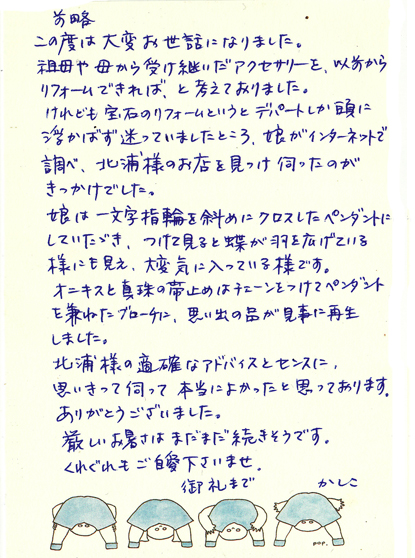 前略
この度は大変お世話になりました。
祖母や母から受け継いだアクセサリーを、以前から
リフォームできれば、と考えておりました。
けれども宝石のリフォームというとデパートしか頭に
浮かばず迷っていましたところ、娘がインターネットで
調べ、北浦様のお店を見つけ伺ったのが
きっかけでした。
娘は一文字指輪を斜めにクロスしたペンダントに
していただき、つけて見ると蝶が羽を広げている
様にも見え、大変気に入っている様です。
オニキスと真珠の帯止めはチェーンをつけてペンダント
を兼ねたブローチに、思い出の品が見事に再生
しました。
北浦様の適確なアドバイスとセンスに、
思いきって伺って本当によかったと思っております。
ありがとうございました。
厳しいお暑さはまだまだ続きそうです。
くれぐれもご自愛下さいませ。
御礼まで かしこ
POP.